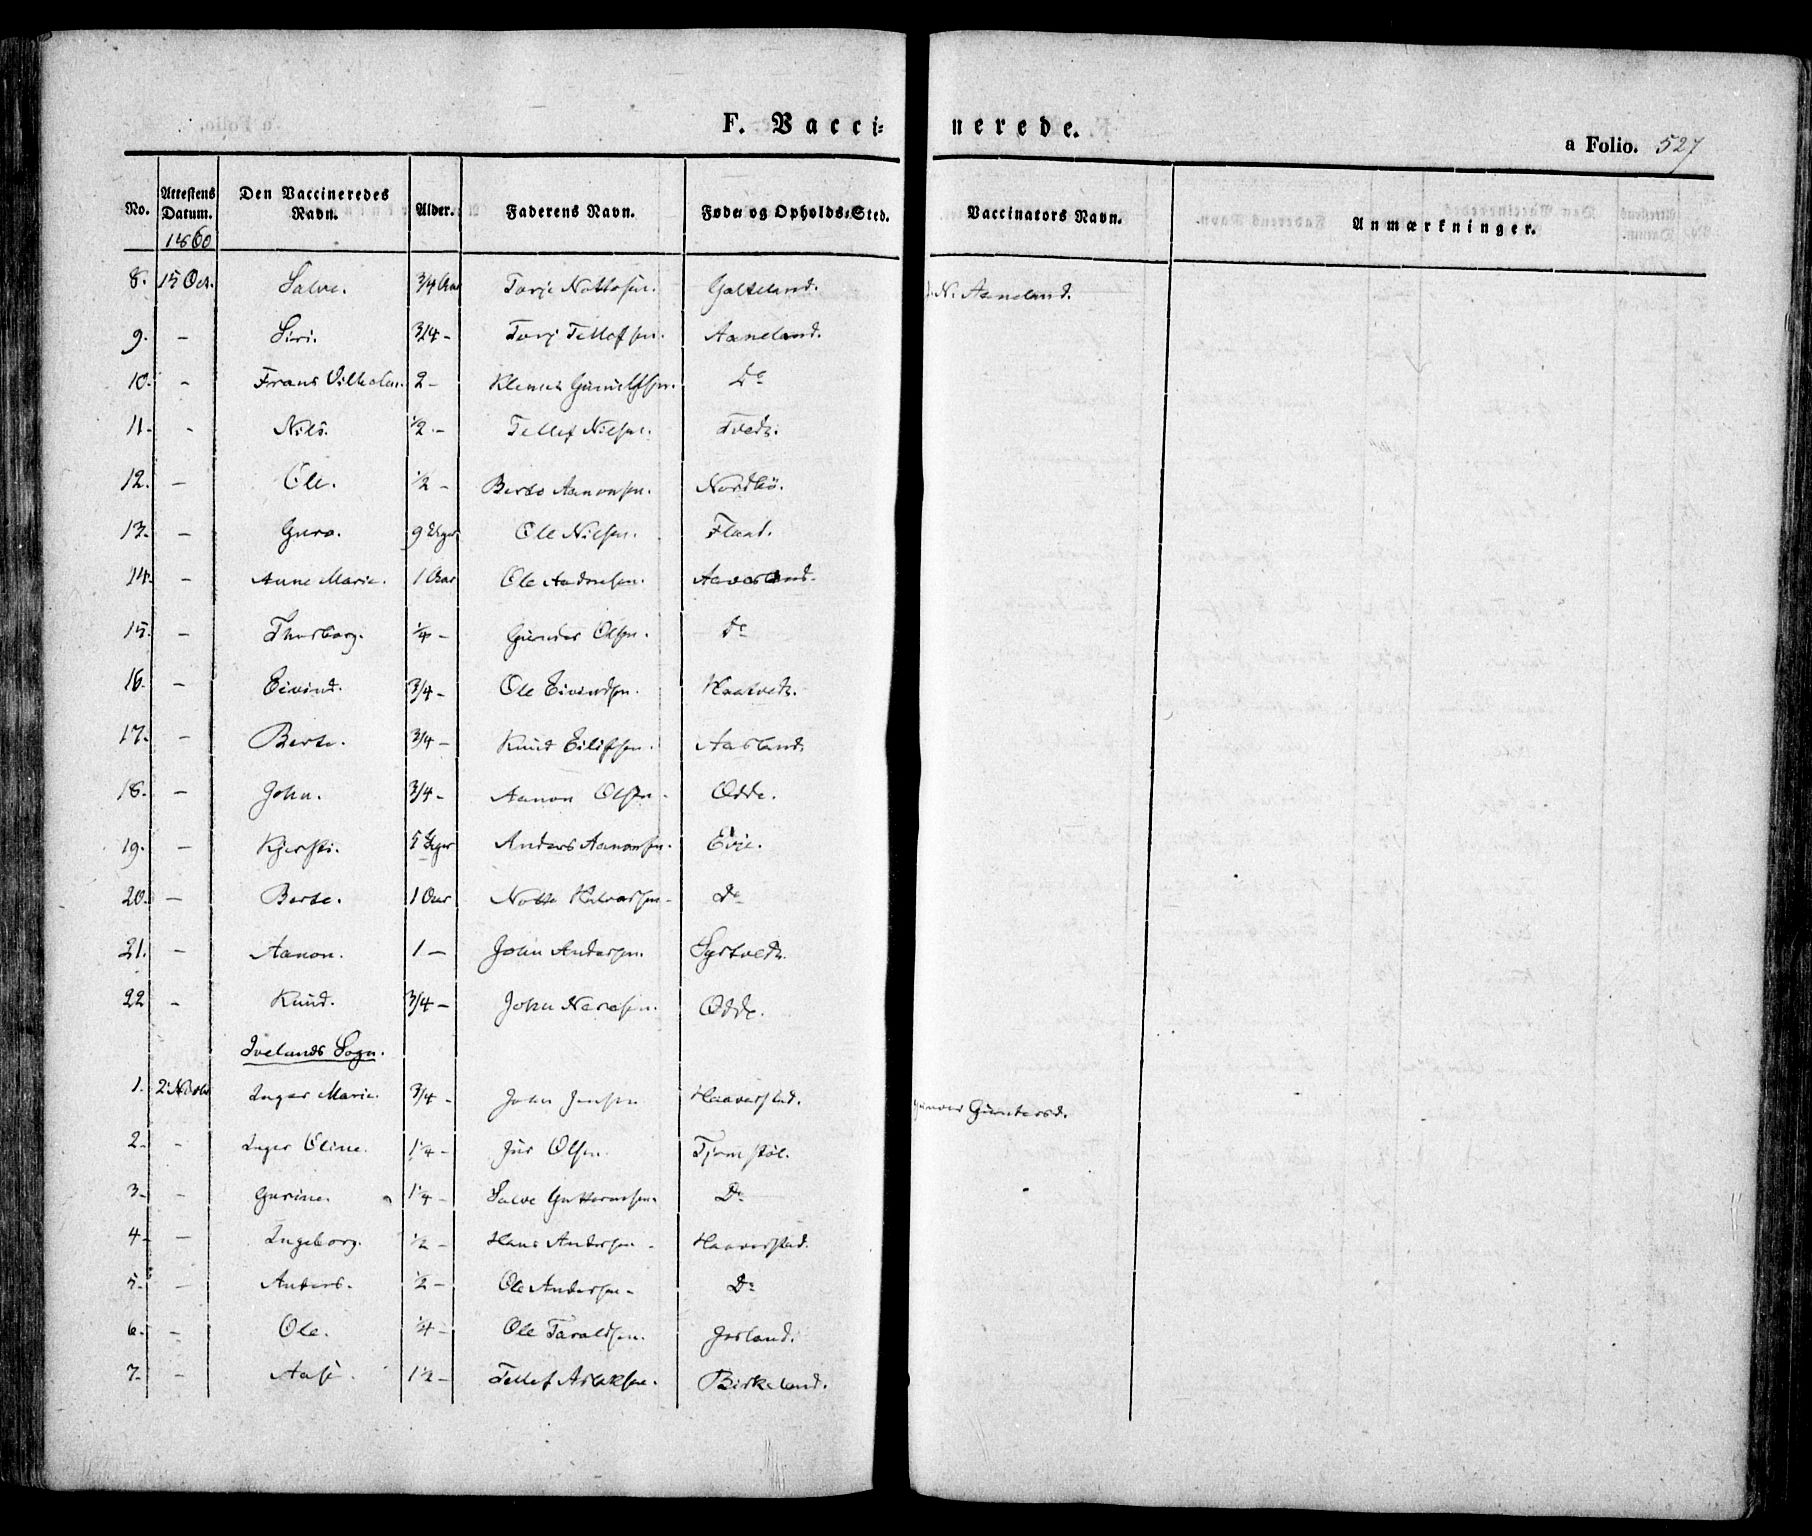 F. Vaccinerede.
a Folio. 527
No. Attestens Datum. Den Vaccineredes Navn. Alder. Faderens Navn. Føde- og Opholds-Sted. Vaccinators Navn. Anmærkninger.
1860
8. 15 Oct. Salve. 3/4 Aar Torje Nottosen. Galteland. N. Aaneland.
9. - Siri. 3/4 - Torj Tellefsen. Aaneland.
10. - Frans Vilhelm. 2 - Klemet Gunulfsen. Do
11. - Nils. 1/2 - Tellef Nilsen. Tvedt.
12. - Ole. 1/2 - Berto Aanonsen. Nordbö.
13. - Guro. 9 Uger Ole Nilsen. Flaat.
14. - Anne Marie. 1 Aar Ole Andresen.
15. - Thorborg. 1/4 - Gunder Olsen. Do
16. - Eivind. 3/4 - Ole Eivindsen. Haatvedt.
17. - Berte. 3/4 - Knud Eilifsen. Aasland.
18. - John. 3/4 - Aanon Olsen. Odde.
19. - Kjersti. 5 Uger Anders Aanonsen. Evje.
20. - Berte. 1 Aar Notto Halvorsen. Do
21. - Aanon. 1 - John Andersen. Syrtvedt.
22 - Knud. 3/4 - John Naresen. Odde.
Ivelands Sogn.
1. 2 Inger Marie. 3/4 - John Jensen Haaverstad. Gunver Guntersd.
2. - Inger Oline. 1 1/4 - Jur Olsen. Tjomstöl.
3. - Gurine. 1 1/4 - Salve Guttormsen. Do
4. - Ingeborg. 1/2 - Hans Andersen - Haaverstad.
5. - Anders. 1/2 - Ole Andersen - Do
6. - Ole. 1/4 - Ole Taraldsen. Jorland.
7. - Aase. 1 1/2 - Tellef Aslaksen. Birkeland.